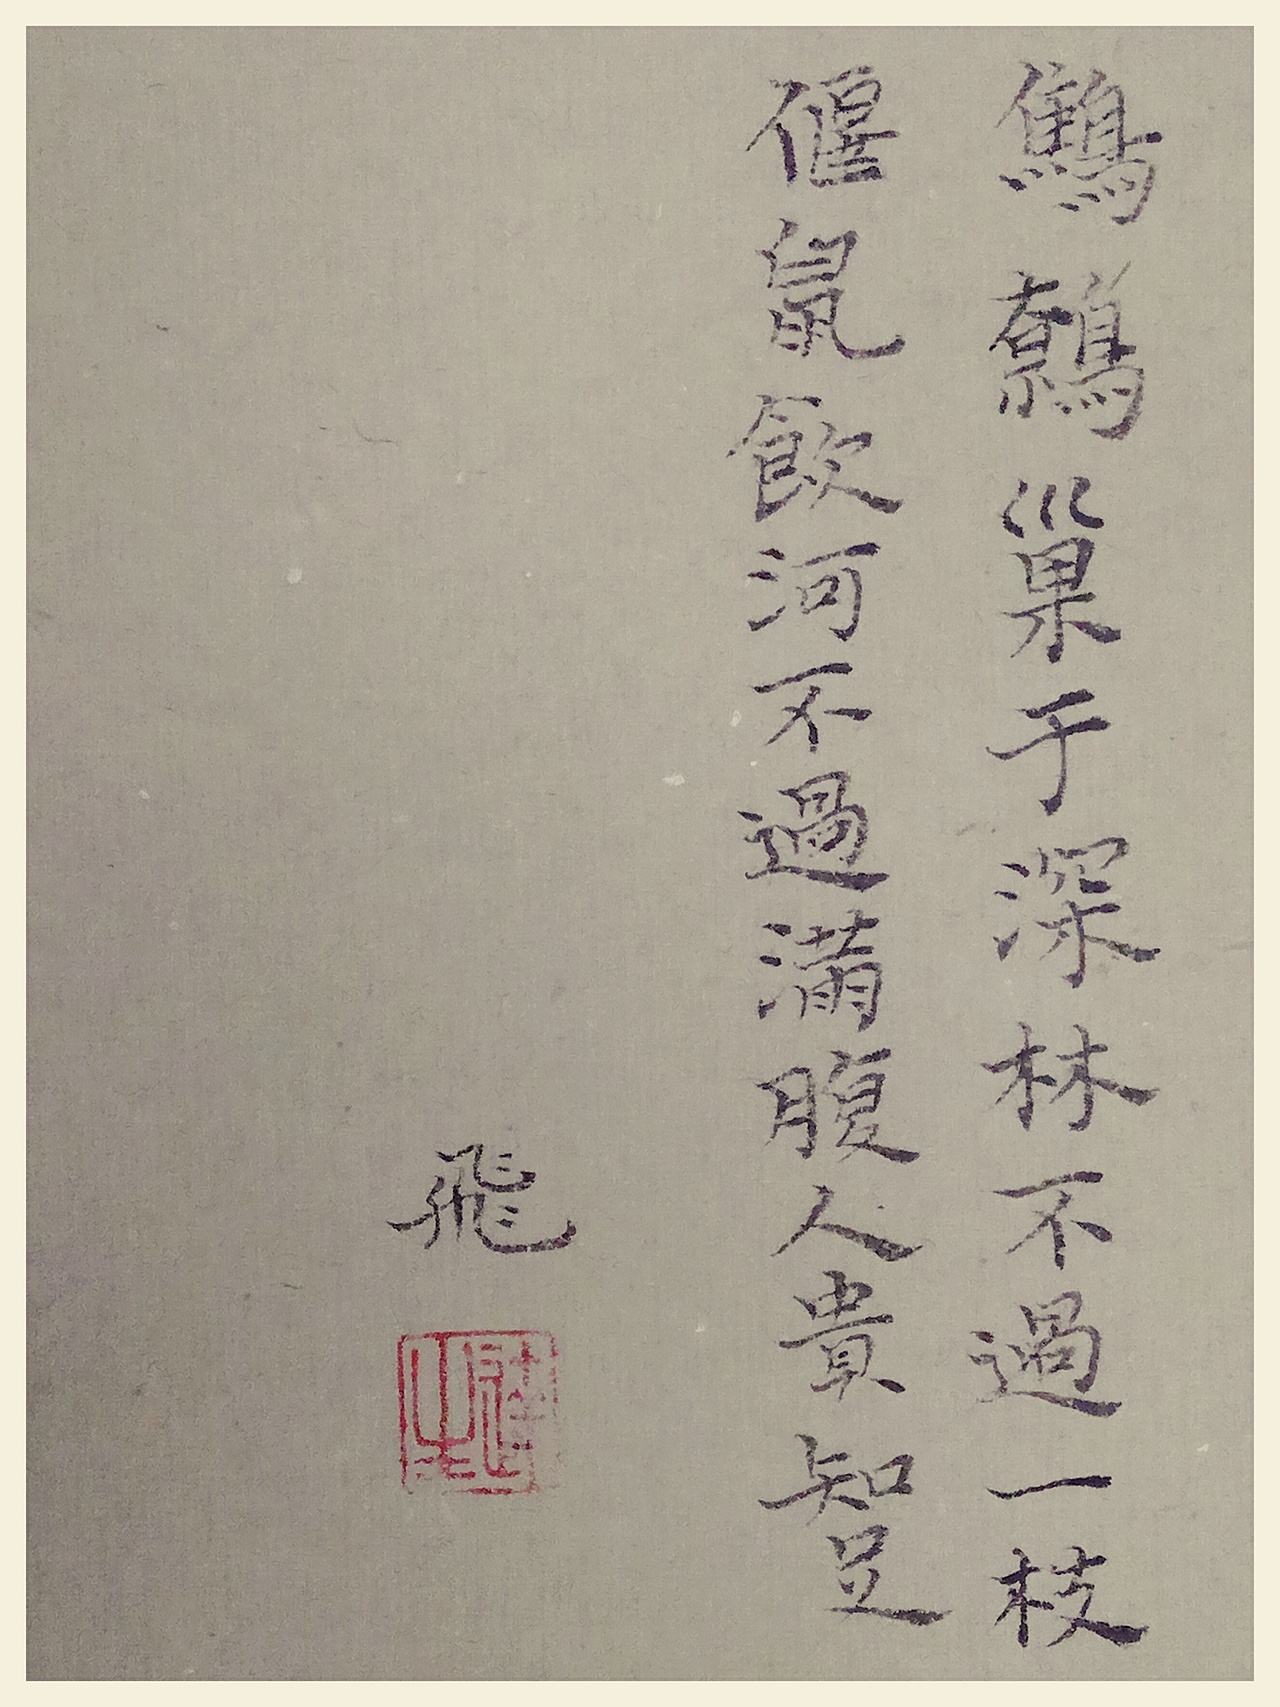 鷦鷯巢于深林不過一枝
偃鼠飲河不過滿腹人貴知足
飛